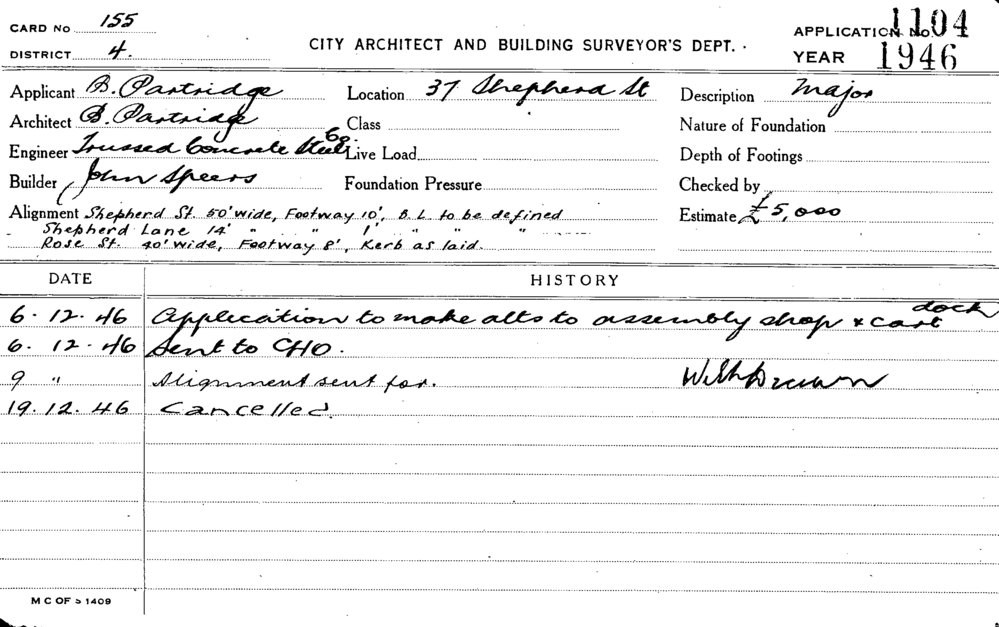 CARD No 155
DISTRICT 4.
CITY ARCHITECT AND BUILDING SURVEYOR'S DEPT.
APPLICATION No. 1104
YEAR 1946
Applicant B. Partridge Location 37 Shepherd St Description Major
Architect B. Partridge Class Nature of Foundation
Engineer Trussed Concrete Steel Co. Live Load Depth of Footings
Builder John Speers Foundation Pressure Checked by
Alignment Shepherd St. 50' wide, Footway 10', B.L. to be defined Estimate £5,000
Shepherd Lane 14' " " 1' " " "
Rose St. 40' wide, Footway 8', Kerb as laid.
DATE HISTORY
6.12.46 Application to make alts to assembly shop & cart dock
6.12.46 Sent to CHO.
9 " Alignment sent for.
19.12.46 Cancelled.
M C OF S 1409